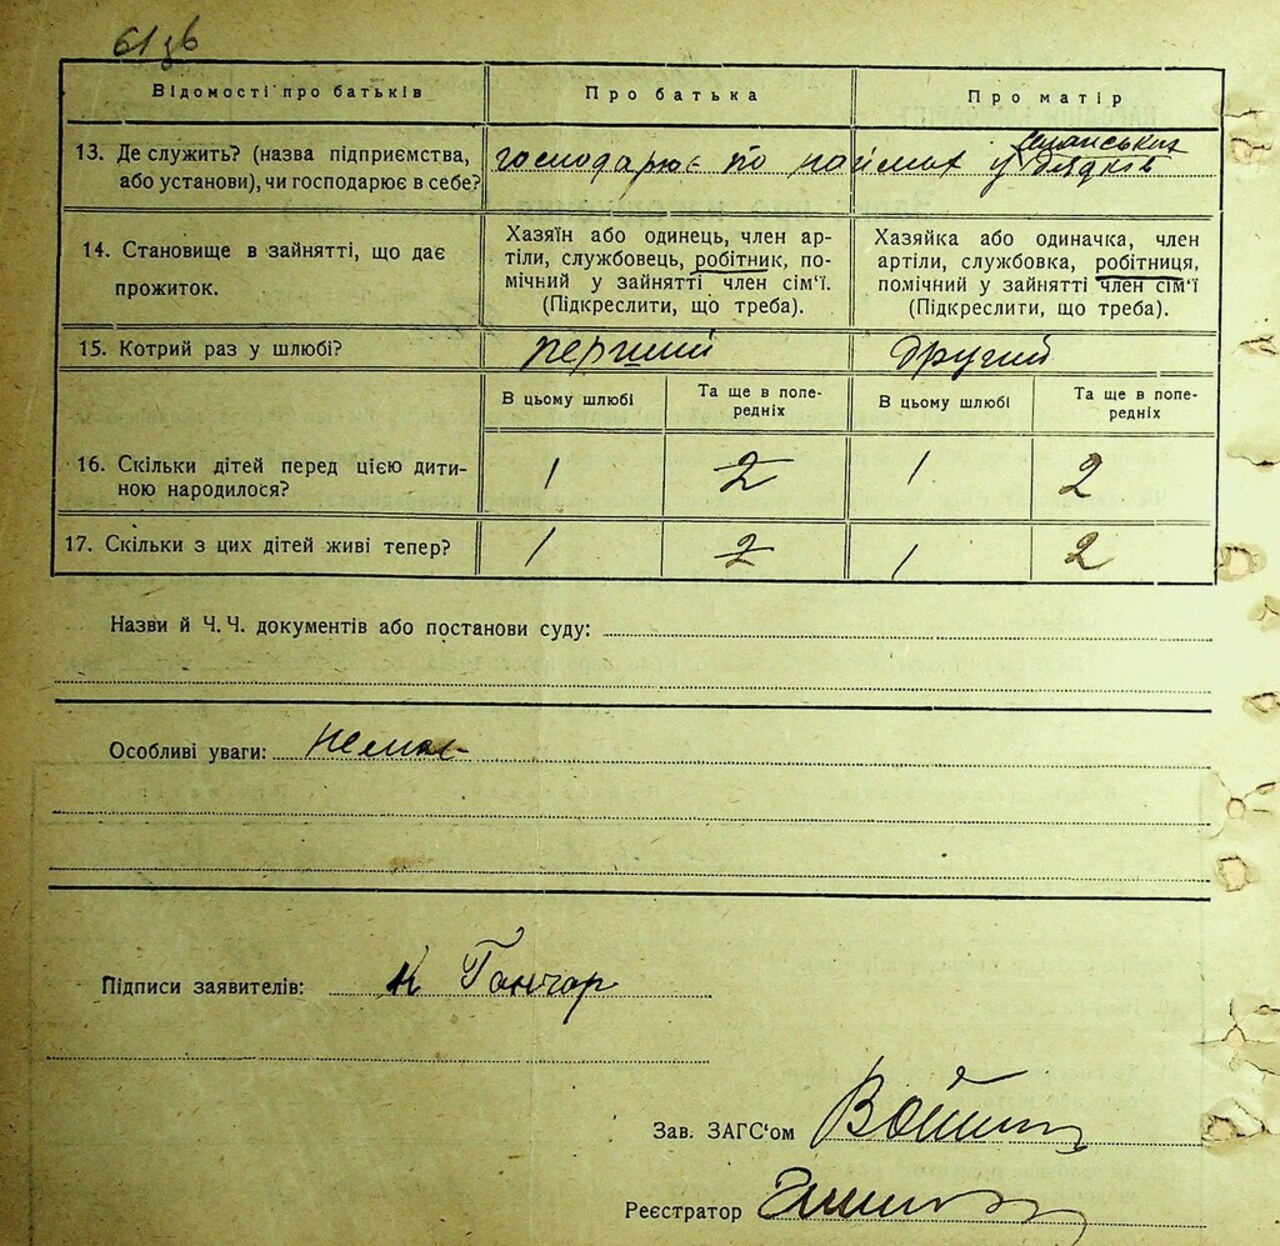 61 зв
Відомості про батьків Про батька Про матір
13. Де служить? (назва підприємства, або установи), чи господарює в себе? господарює по наймах у селянських дядків
14. Становище в зайнятті, що дає прожиток.
Хазяїн або одинець, член ар-
тіли, службовець, робітник, по-
мічний у зайнятті член сім'ї.
(Підкреслити, що треба).
Хазяйка або одиначка, член
артіли, службовка, робітниця,
помічний у зайнятті член сім'ї
(Підкреслити, що треба).
15. Котрий раз у шлюбі? перший другий
В цьому шлюбі Та ще в попе-
редніх В цьому шлюбі Та ще в попе-
редніх
16. Скільки дітей перед цією дити-
ною народилося? 1 2 1 2
17. Скільки з цих дітей живі тепер? 1 2 1 2
Назви й Ч. Ч. документів або постанови суду:
Особливі уваги: немає
Підписи заявителів: К Гончар
Зав. ЗАГС'ом
Реєстратор